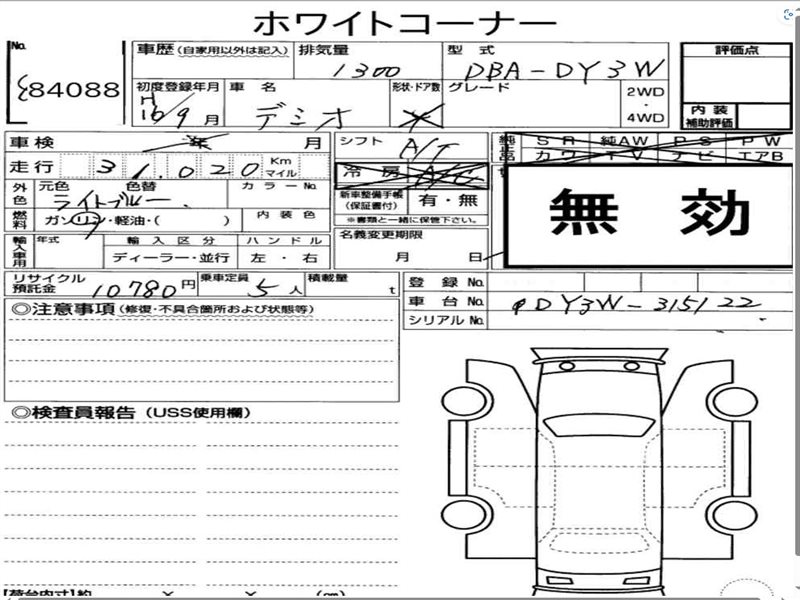 ホワイトコーナー
No.
84088
車歴(自家用以外は記入)
排気量
1300
型 式
DBA-DY3W
評価点
初度登録年月
H
16/9月
車 名
デミオ
形状・ドア数
グレード
2WD
・
4WD
内 装
補助評価
車検 年 月
シフト
A/T
純正品
S R 純AW P S P W
カワ T V ナビ エアB
走行 31,020
Km
マイル
冷 房 A/C
外色
元色
色替
ライトブルー
カ ラ ー No.
新車整備手帳
(保証書付)
有・無
※書類と一緒に保管下さい。
無 効
燃料
ガソリン・軽油・( )
内 装 色
名義変更期限
月 日
輸入車用
年式
輸 入 区 分
ディーラー・並行
ハ ン ド ル
左 ・ 右
リサイクル
預託金 10780円
乗車定員
5人
積載量
t
登 録 No.
車 台 No. DY3W-315122
シリアル No.
◎注意事項(修復・不具合箇所および状態等)
◎検査員報告(USS使用欄)
【荷台内寸】約 × × (cm)